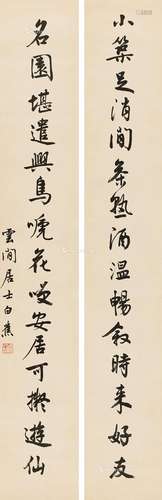 小築足消閒茶熟酒溫暢敘時來好友
名園堪遣興鳥嚦花嘜安居可擬遊仙
雲閒居士白蕉